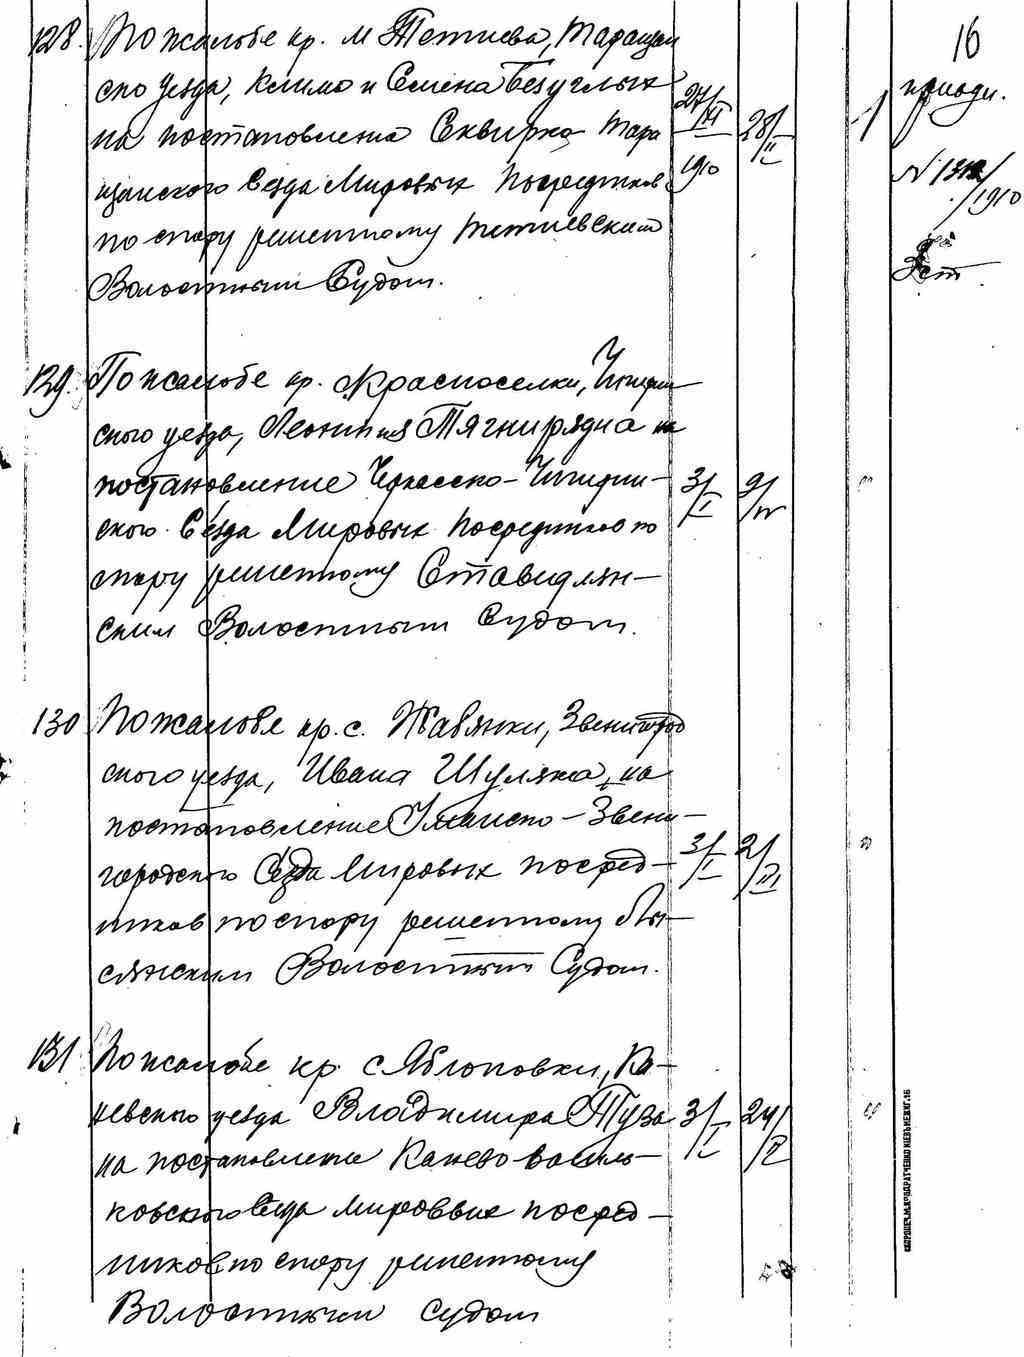 16
128. По жалобе кр. м Тетиева, Таращан
ско уезда, Клима и Семена Безуглых
на постановление Сквирко Тара
щанского Сезда Мировых Посредников
по спору решенному Тетиевским
Волостным Судом.
27/XII 1910
28/II
1
приоди.
N 1312/1910
129. По жалобе кр. с Красноселки, Чигирин
ского уезда, Леонтия Тягнирядна на
постановление Черкасско-Чигирин-
ского Сезда Мировых Посредников по
спору решенному Ставидлян-
ским Волостным Судом.
3/I
9/IV
130 По жалобе кр. с. Жабянки, Звенигород
ского уезда, Ивана Шуляка, на
постановление Уманско-Звени-
городского Сезда Мировых посред-
ников по спору решенному Лы-
сянским Волостным Судом.
3/I
2/III
131 По жалобе кр с Яблоновки, Ка-
невского уезда Владимира Туза
на постановление Канево-василь-
ковского Сезда мировых посред-
ников по спору решенному
Волостным Судом
3/I
24/II